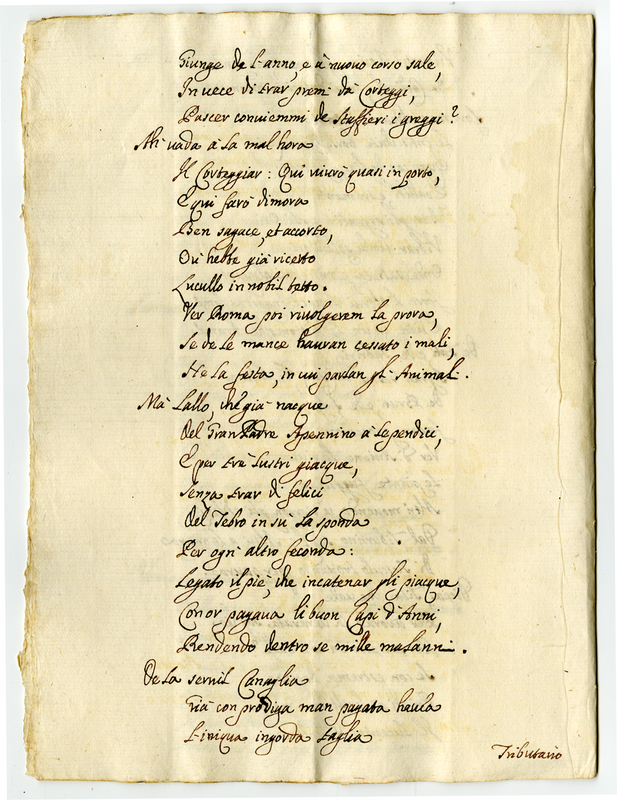 Giunge de l'anno, e à nuovo corso sale,
In vece di trar premi da Corteggi,
Pascer conviemmi de Staffieri i greggi?
Ah vada à la mal hora
Il Corteggiar: Qui vivrò quasi in porto,
E qui farò dimora
Ben sagace, et accorto,
Ov' hebbe già ricetto
Lucullo in nobil tetto.
Ver Roma poi rivolgerem la prova,
Se de le mance hauran cessato i mali,
Ne la festa, in cui parlan gl' Animali.
Mà Lallo, che già nacque
Del Gran Padre Apennino à le pendici,
E per trè lustri giacque,
Senza trar dì felici
Del Tebro in sù la sponda
Per ogni altro feconda:
Legato il piè, che incatenar gli piacque,
Con or pagava li buon Capi d'Anni,
Rendendo dentro se mille malanni.
De la servil Canaglia
Già con prodiga man pagata havea
L'iniqua ingorda taglia
Tributario